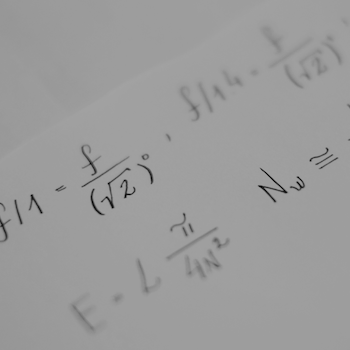 f/1 = f/(√2)⁰, f/1.4 = f/(√2)
N_w ≅
E = L π/4N²